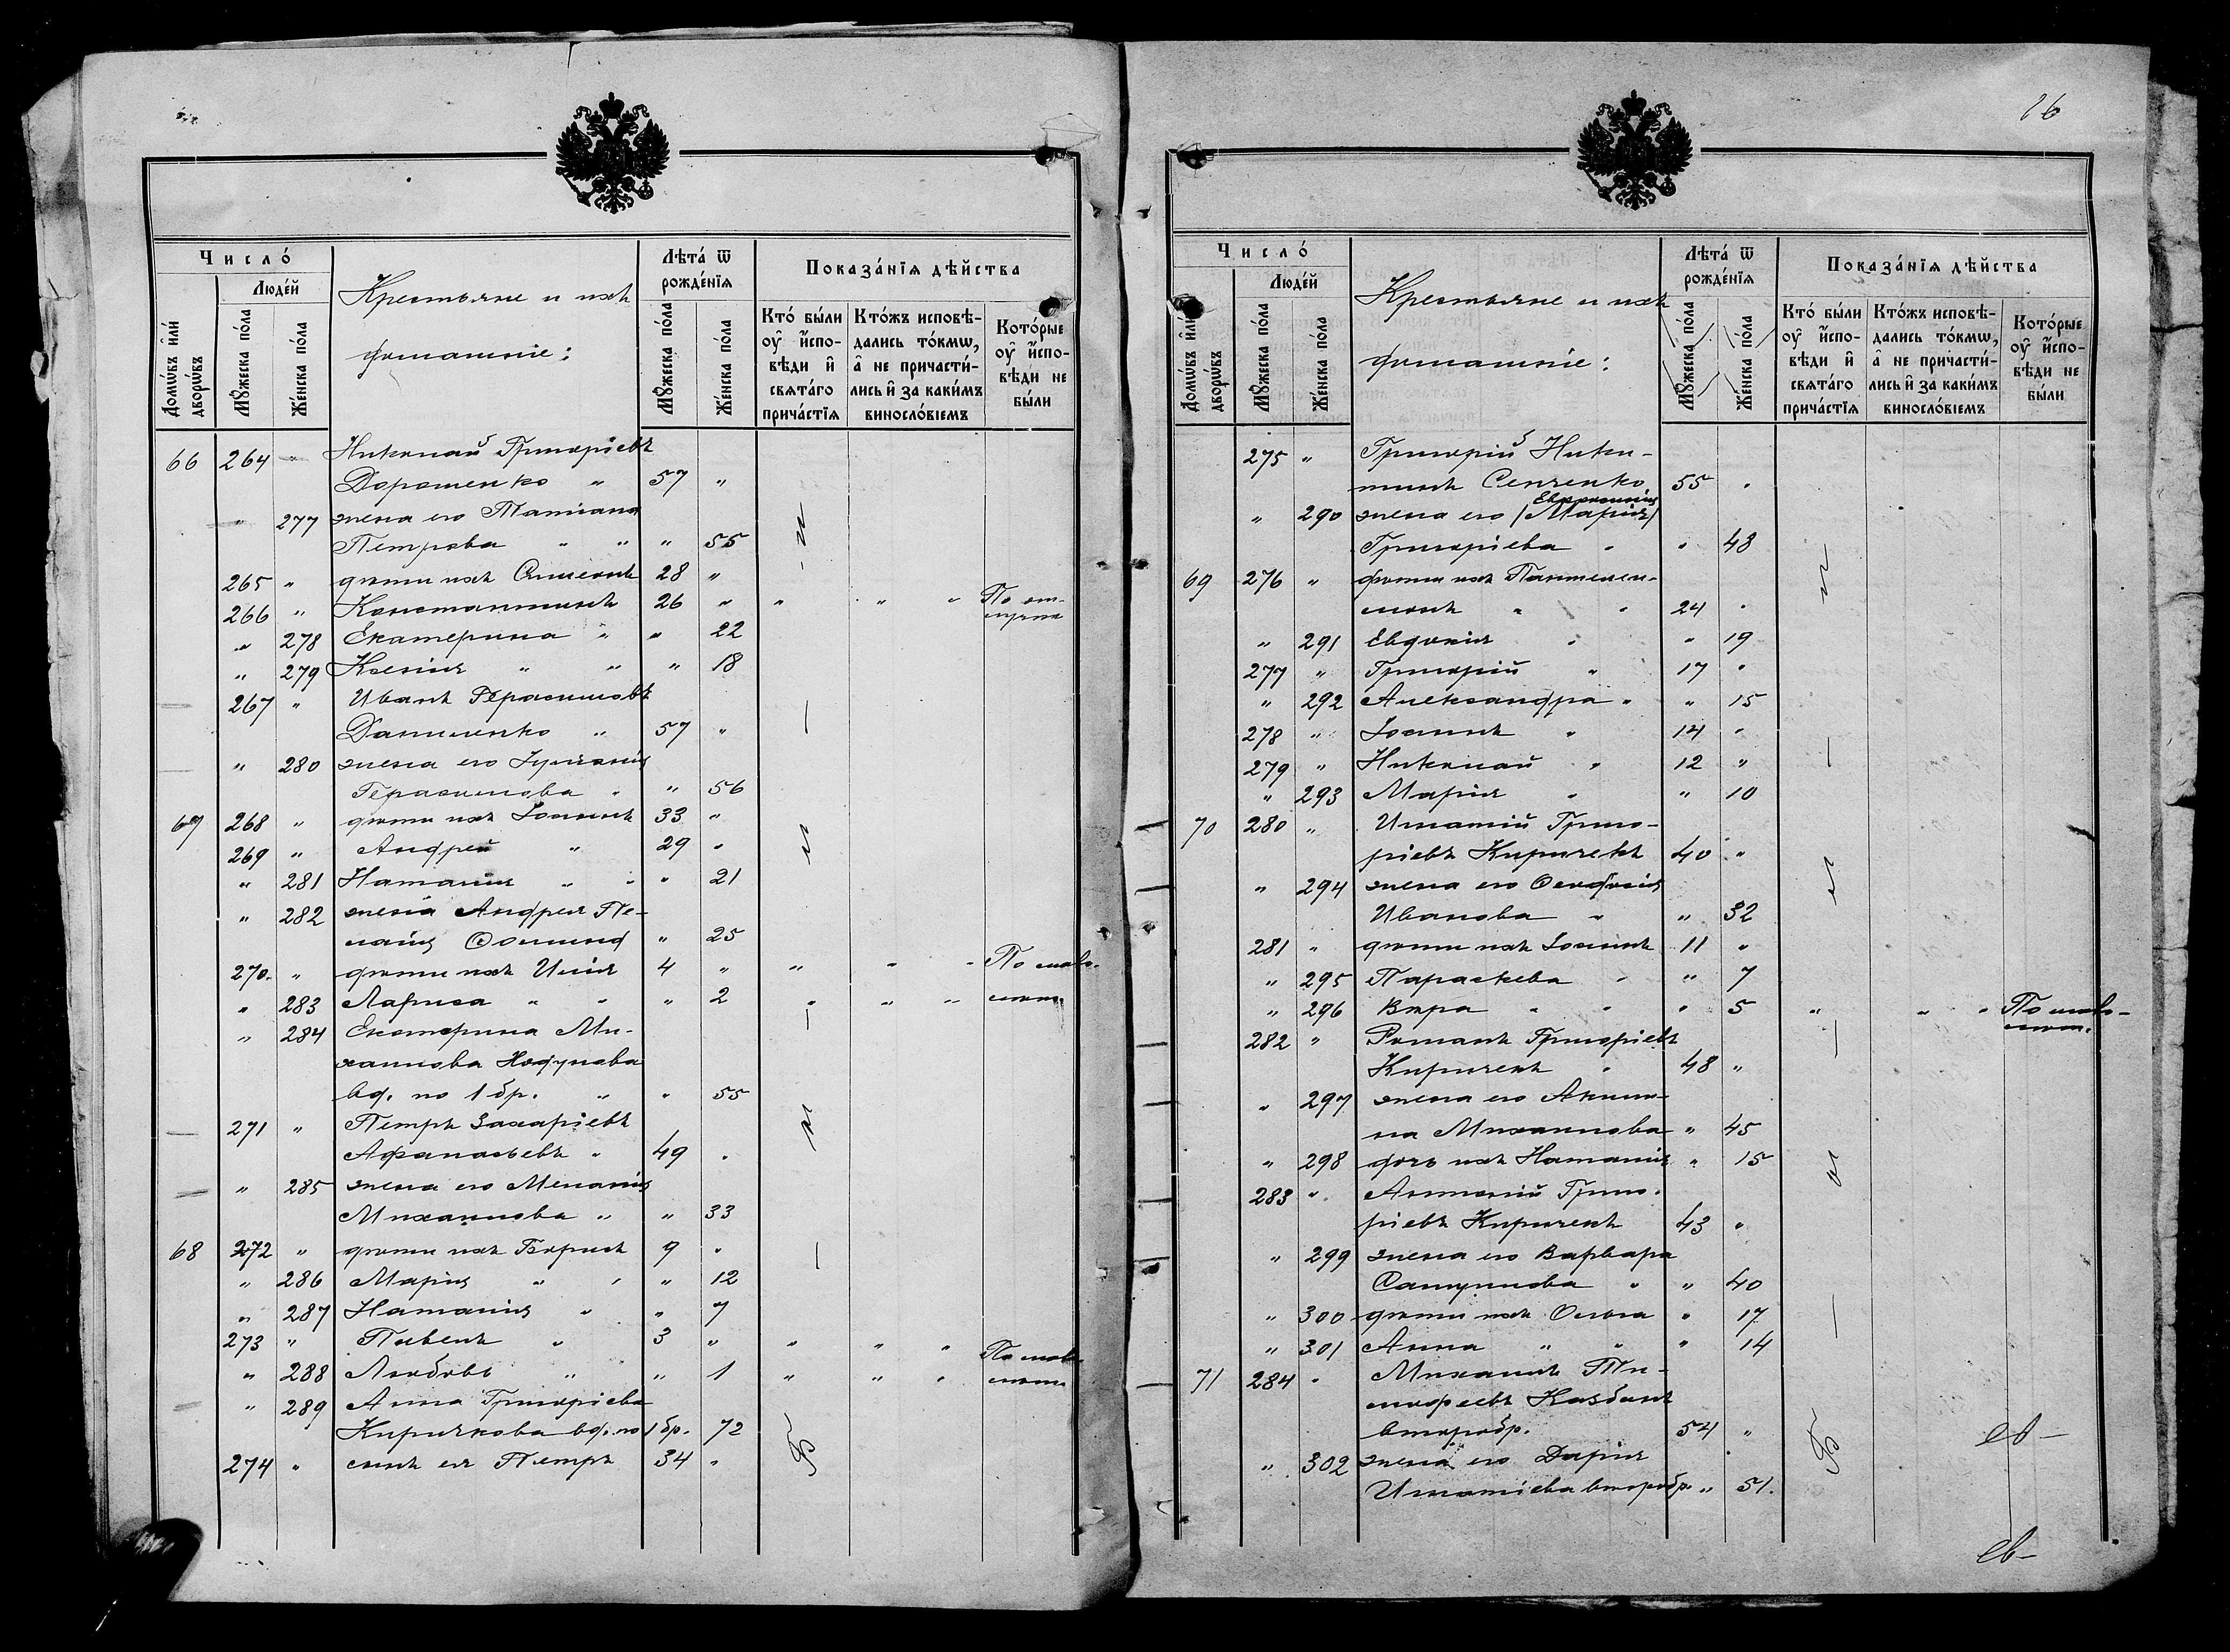 Число́
Людéй
Домѡвъ и҆лѝ дворѡвъ
Мꙋ́жеска по́ла
Же́нска по́ла
Крестьяне и ихъ
домашніе:
Лѣта̀ ѿ рожде́нїѧ
Мꙋ́жеска по́ла
Же́нска по́ла
Показа́нїѧ дѣ́йства
Кто̀ бы́ли оу҆ и҆спо-
вѣди и҆ свята́гѡ прича́стїѧ
Кто́жъ исповѣ-
дались то́кмѡ, а҆ не причасти́-
лись и҆ за каки́мъ винослові́емъ
Кото́рые оу҆ и҆спо-
вѣди не бы́ли
66 264 " Николай Григоріевъ
Дорошенко " 57 "
" 277 жена его Татіана
Петрова " " " 55
265 " дѣти ихъ Симеонъ 28 "
266 " Константинъ 26 " " " " По от-
" 278 Екатерина " " 22
" 279 Ксенія " " " 18
267 " Иванъ Герасимовъ
Даниленко " 57 "
" 280 жена его Іуліанія
Герасимова " " 56
67 268 " дѣти ихъ Іоаннъ 33 "
269 " Андрей " 29 "
" 281 Наталія " " " 21
" 282 жена Андрея Пе-
лагія " 25
270. " дѣти ихъ Илія 4 " " " " По мало-
" 283 Лариса " " " 2 " " " лѣт.
" 284 Екатерина Ми-
хаилова
вд. по 1 бр. " " 55
271 " Петръ Захаріевъ
Афанасьевъ " 49 "
" 285 жена его Меланія
Михаилова " " 33
68 272 " дѣти ихъ Борисъ 9 "
" 286 Марія " " " 12
" 287 Наталія " " 7
273 " Павелъ " 3 " " " " По мало-
" 288 Любовь " " 1 " " " лѣт.
" 289 Анна Григоріева
Киричкова вд. по 1 бр. 72
274 " сынъ ея Петръ 34 "
26
Число́
Людéй
Домѡвъ и҆лѝ дворѡвъ
Мꙋ́жеска по́ла
Же́нска по́ла
Крестьяне и ихъ
домашніе:
Лѣта̀ ѿ рожде́нїѧ
Мꙋ́жеска по́ла
Же́нска по́ла
Показа́нїѧ дѣ́йства
Кто̀ бы́ли оу҆ и҆спо-
вѣди и҆ свята́гѡ прича́стїѧ
Кто́жъ исповѣ-
дались то́кмѡ, а҆ не причасти́-
лись и҆ за каки́мъ винослові́емъ
Кото́рые оу҆ и҆спо-
вѣди не бы́ли
275 " Григорій Ники-
тинъ Сенченко 55 "
Евфросинія
" 290 жена его (Марія)
Григоріева " " 48
69 276 " дѣти ихъ Пантелеи-
монъ " " 24 "
" 291 Евдокія " " 19
277 " Григорій " 17 "
" 292 Александра " " 15
278 " Іоаннъ " 14 "
279 " Николай " 12 "
" 293 Марія " " 10
70 280 " Игнатій Григо-
ріевъ Киричекъ 40 "
" 294 жена его Феодосія
Иванова " " 32
281 " дѣти ихъ Іоаннъ 11 "
" 295 Параскева " " 7
" 296 Вѣра " " " 5 " " " По мало-
лѣт.
282 " Романъ Григоріевъ
Киричекъ " 48 "
" 297 жена его Акили-
на Михаилова " 45
" 298 дочь ихъ Наталія " 15
283 " Антоній Григо-
ріевъ Киричекъ 43 "
" 299 жена его Варвара
Самуилова " " 40
" 300 дѣти ихъ Ольга " 17
" 301 Анна " " " 14
71 284 " Михаилъ Ти-
мофеевъ Казбанъ
второбр. 54 "
" 302 жена его Дарія
Игнатіева второбр. " 51.